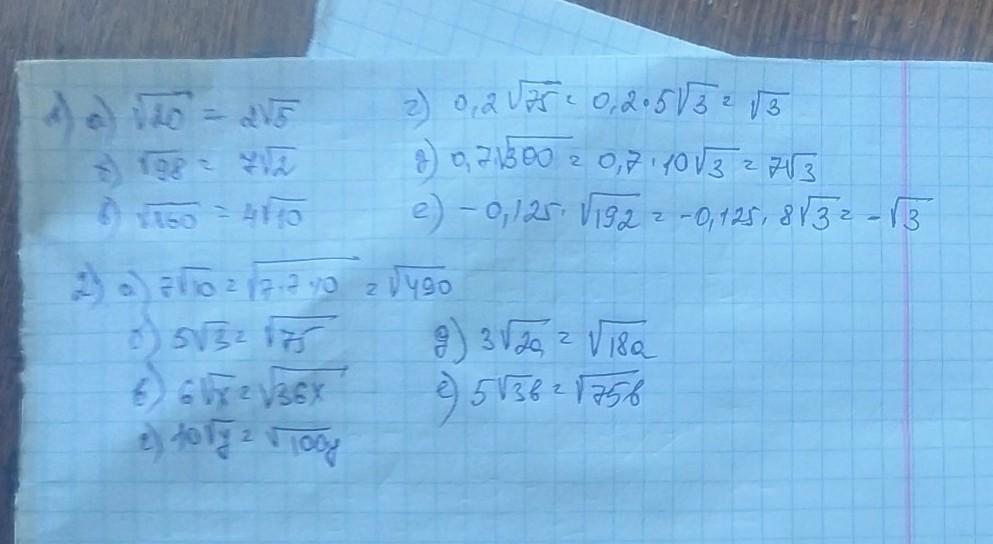 1) а) √20 = 2√5
б) √98 = 7√2
в) √160 = 4√10
г) 0,2√75 = 0,2·5√3 = √3
д) 0,7·√300 = 0,7·10√3 = 7√3
е) -0,125·√192 = -0,125·8√3 = -√3
2) а) 7√10 = √7·7·10 = √490
б) 5√3 = √75
в) 6√x = √36x
г) 10√y = √100y
д) 3√2a = √18a
е) 5√3в = √75в